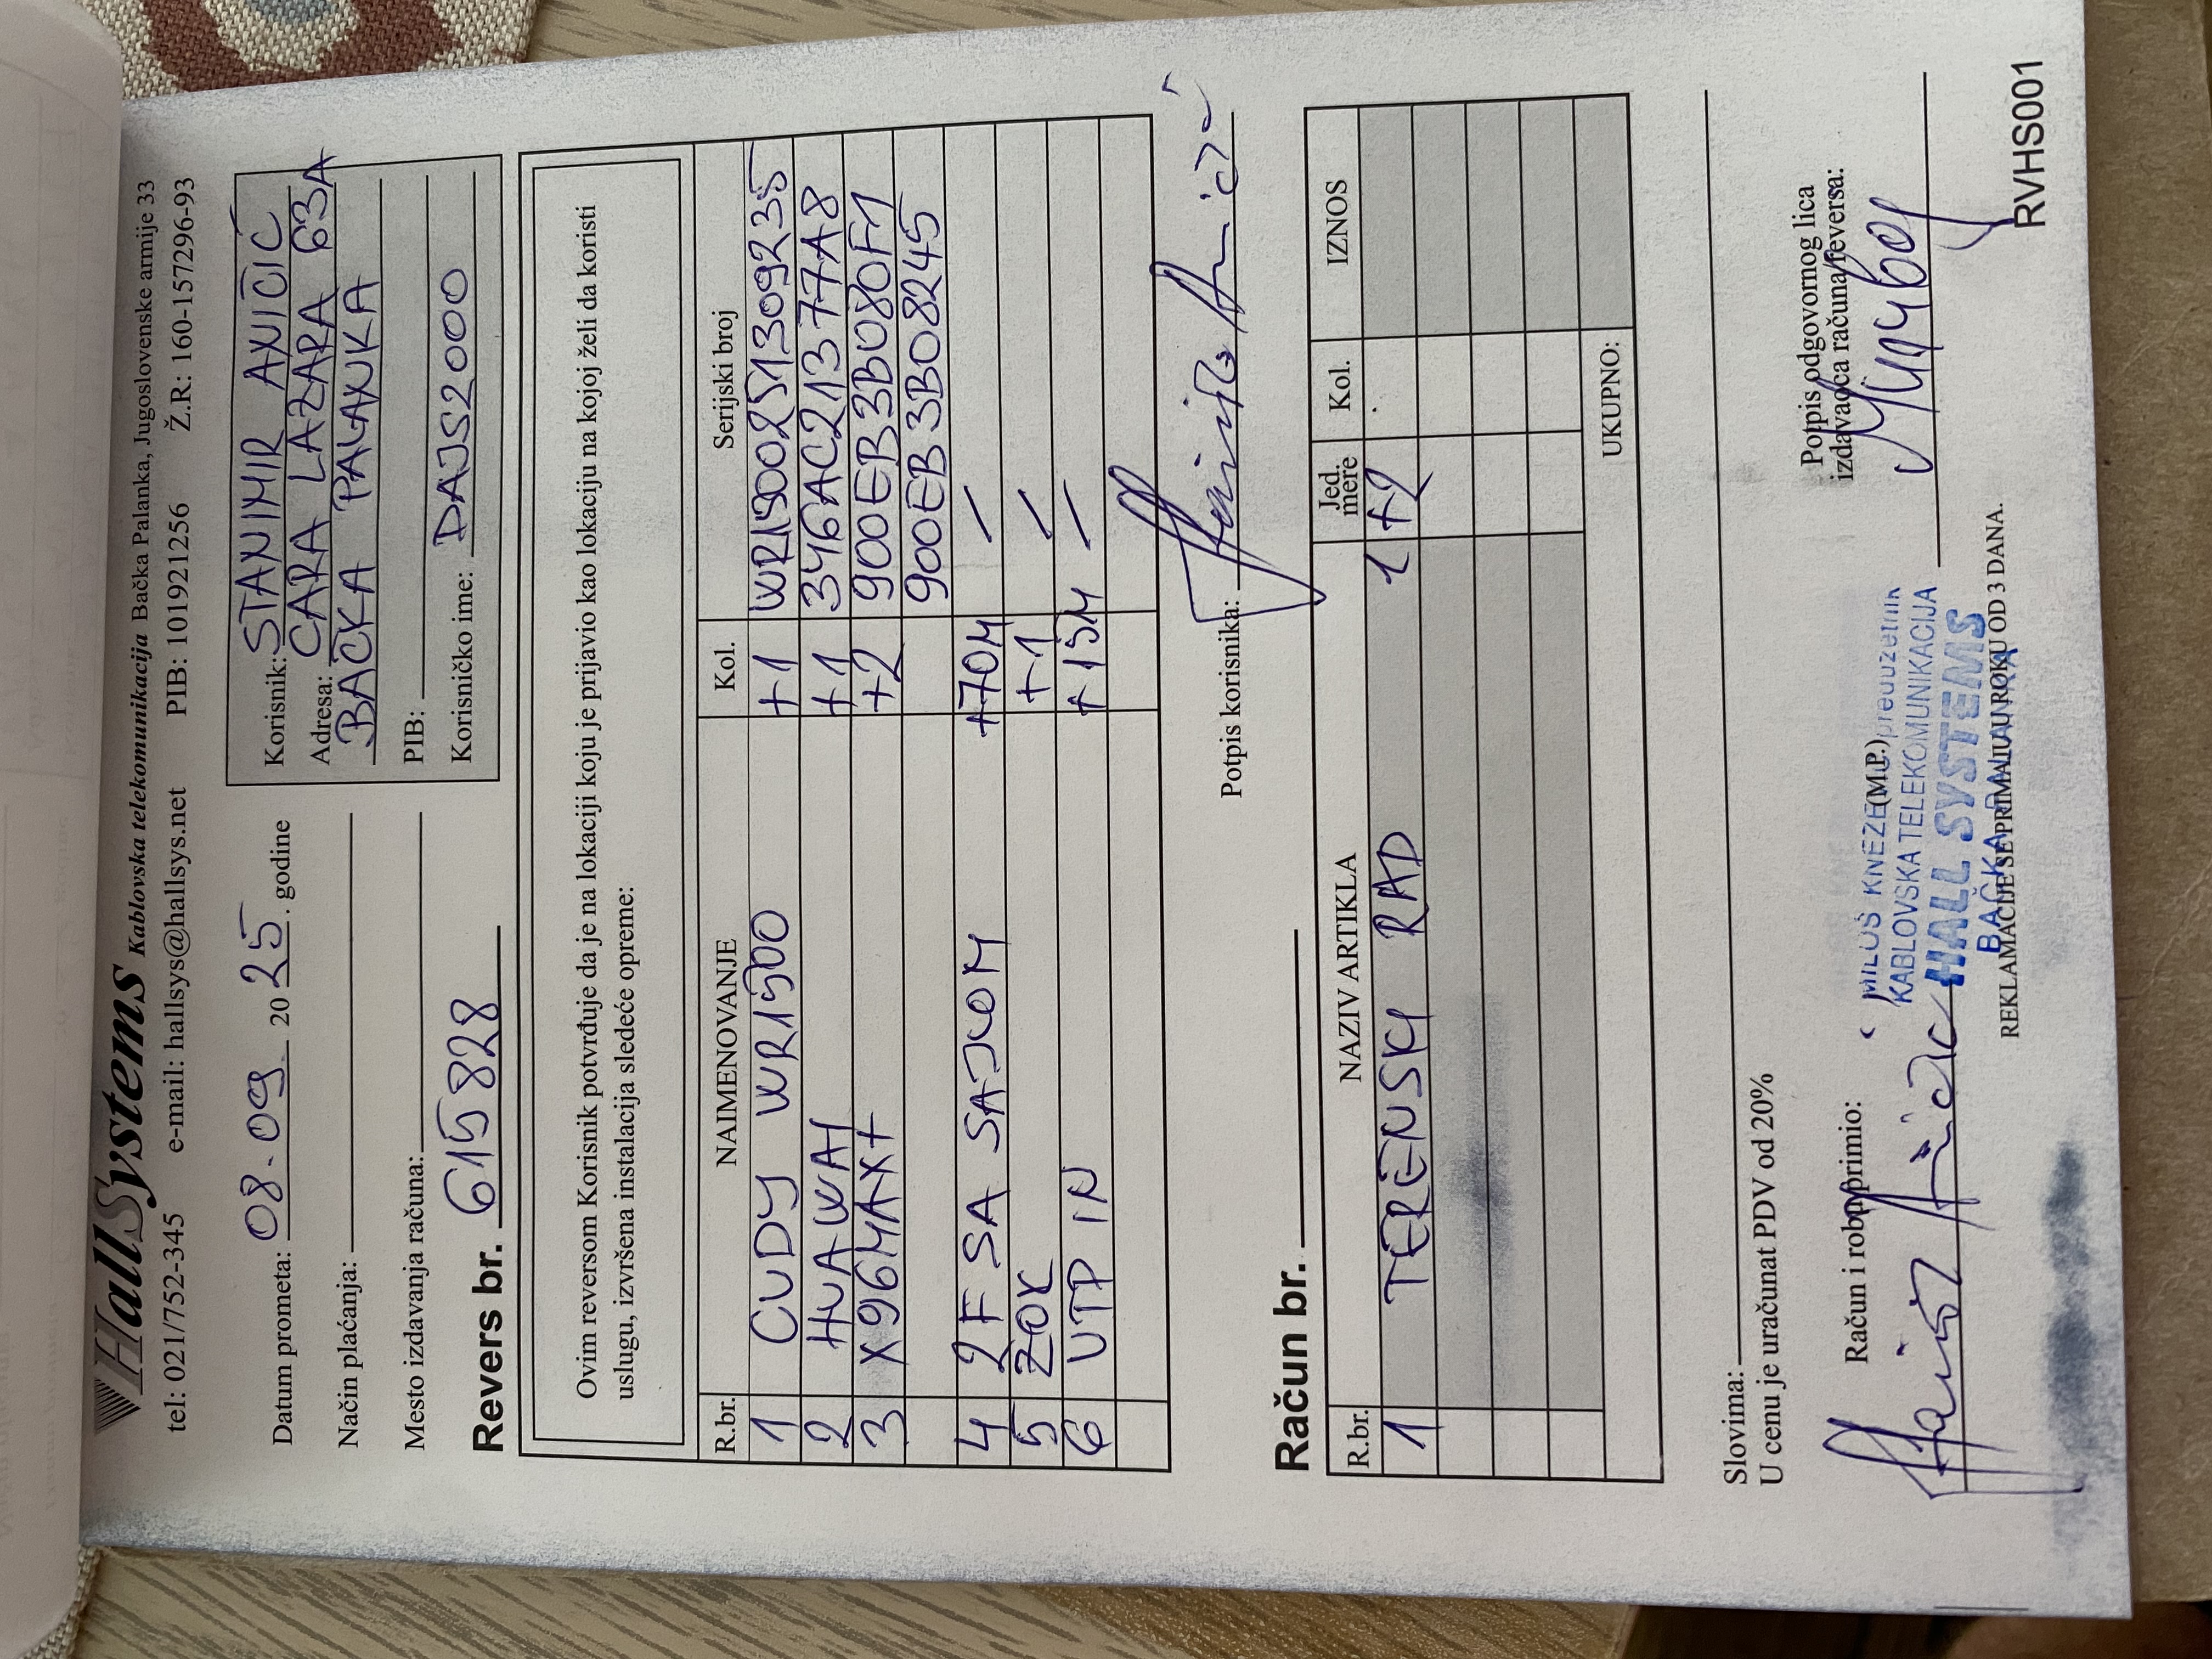 HallSystems Kablovska telekomunikacija Bačka Palanka, Jugoslovenske armije 33
tel: 021/752-345 e-mail: hallsys@hallsys.net PIB: 101921256 Ž.R: 160-157296-93
Datum prometa: 08.09. 2025. godine
Način plaćanja:
Mesto izdavanja računa:
Revers br. 615828
Korisnik: STANIMIR ANIČIĆ
Adresa: CARA LAZARA 63A
BAČKA PALANKA
PIB:
Korisničko ime: DAJS2000
Ovim reversom Korisnik potvrđuje da je na lokaciji koju je prijavio kao lokaciju na kojoj želi da koristi
uslugu, izvršena instalacija sledeće opreme:
R.br. NAIMENOVANJE Kol. Serijski broj
1 CUDY WR1500 +1 WR1500251309235
2 HUAWAI +1 346AC21377A8
3 X96MAX+ +2 900EB3B080F1
900EB3B08245
4 2F SA SAJLOM +70M /
5 ZOK +1 /
6 UTP IN +15M /
Potpis korisnika:
Račun br.
R.br. NAZIV ARTIKLA Jed. mere Kol. IZNOS
1 TERENSKI RAD 1 +2
UKUPNO:
Slovima:
U cenu je uračunat PDV od 20%
Račun i robu primio:
(M.P.)
Potpis odgovornog lica
izdavaoca računa/reversa:
MILOŠ KNEŽE preduzetnik
KABLOVSKA TELEKOMUNIKACIJA
HALL SYSTEMS
BAČKA PALANKA
REKLAMACIJE SE PRIMAJU U ROKU OD 3 DANA.
RVHS001